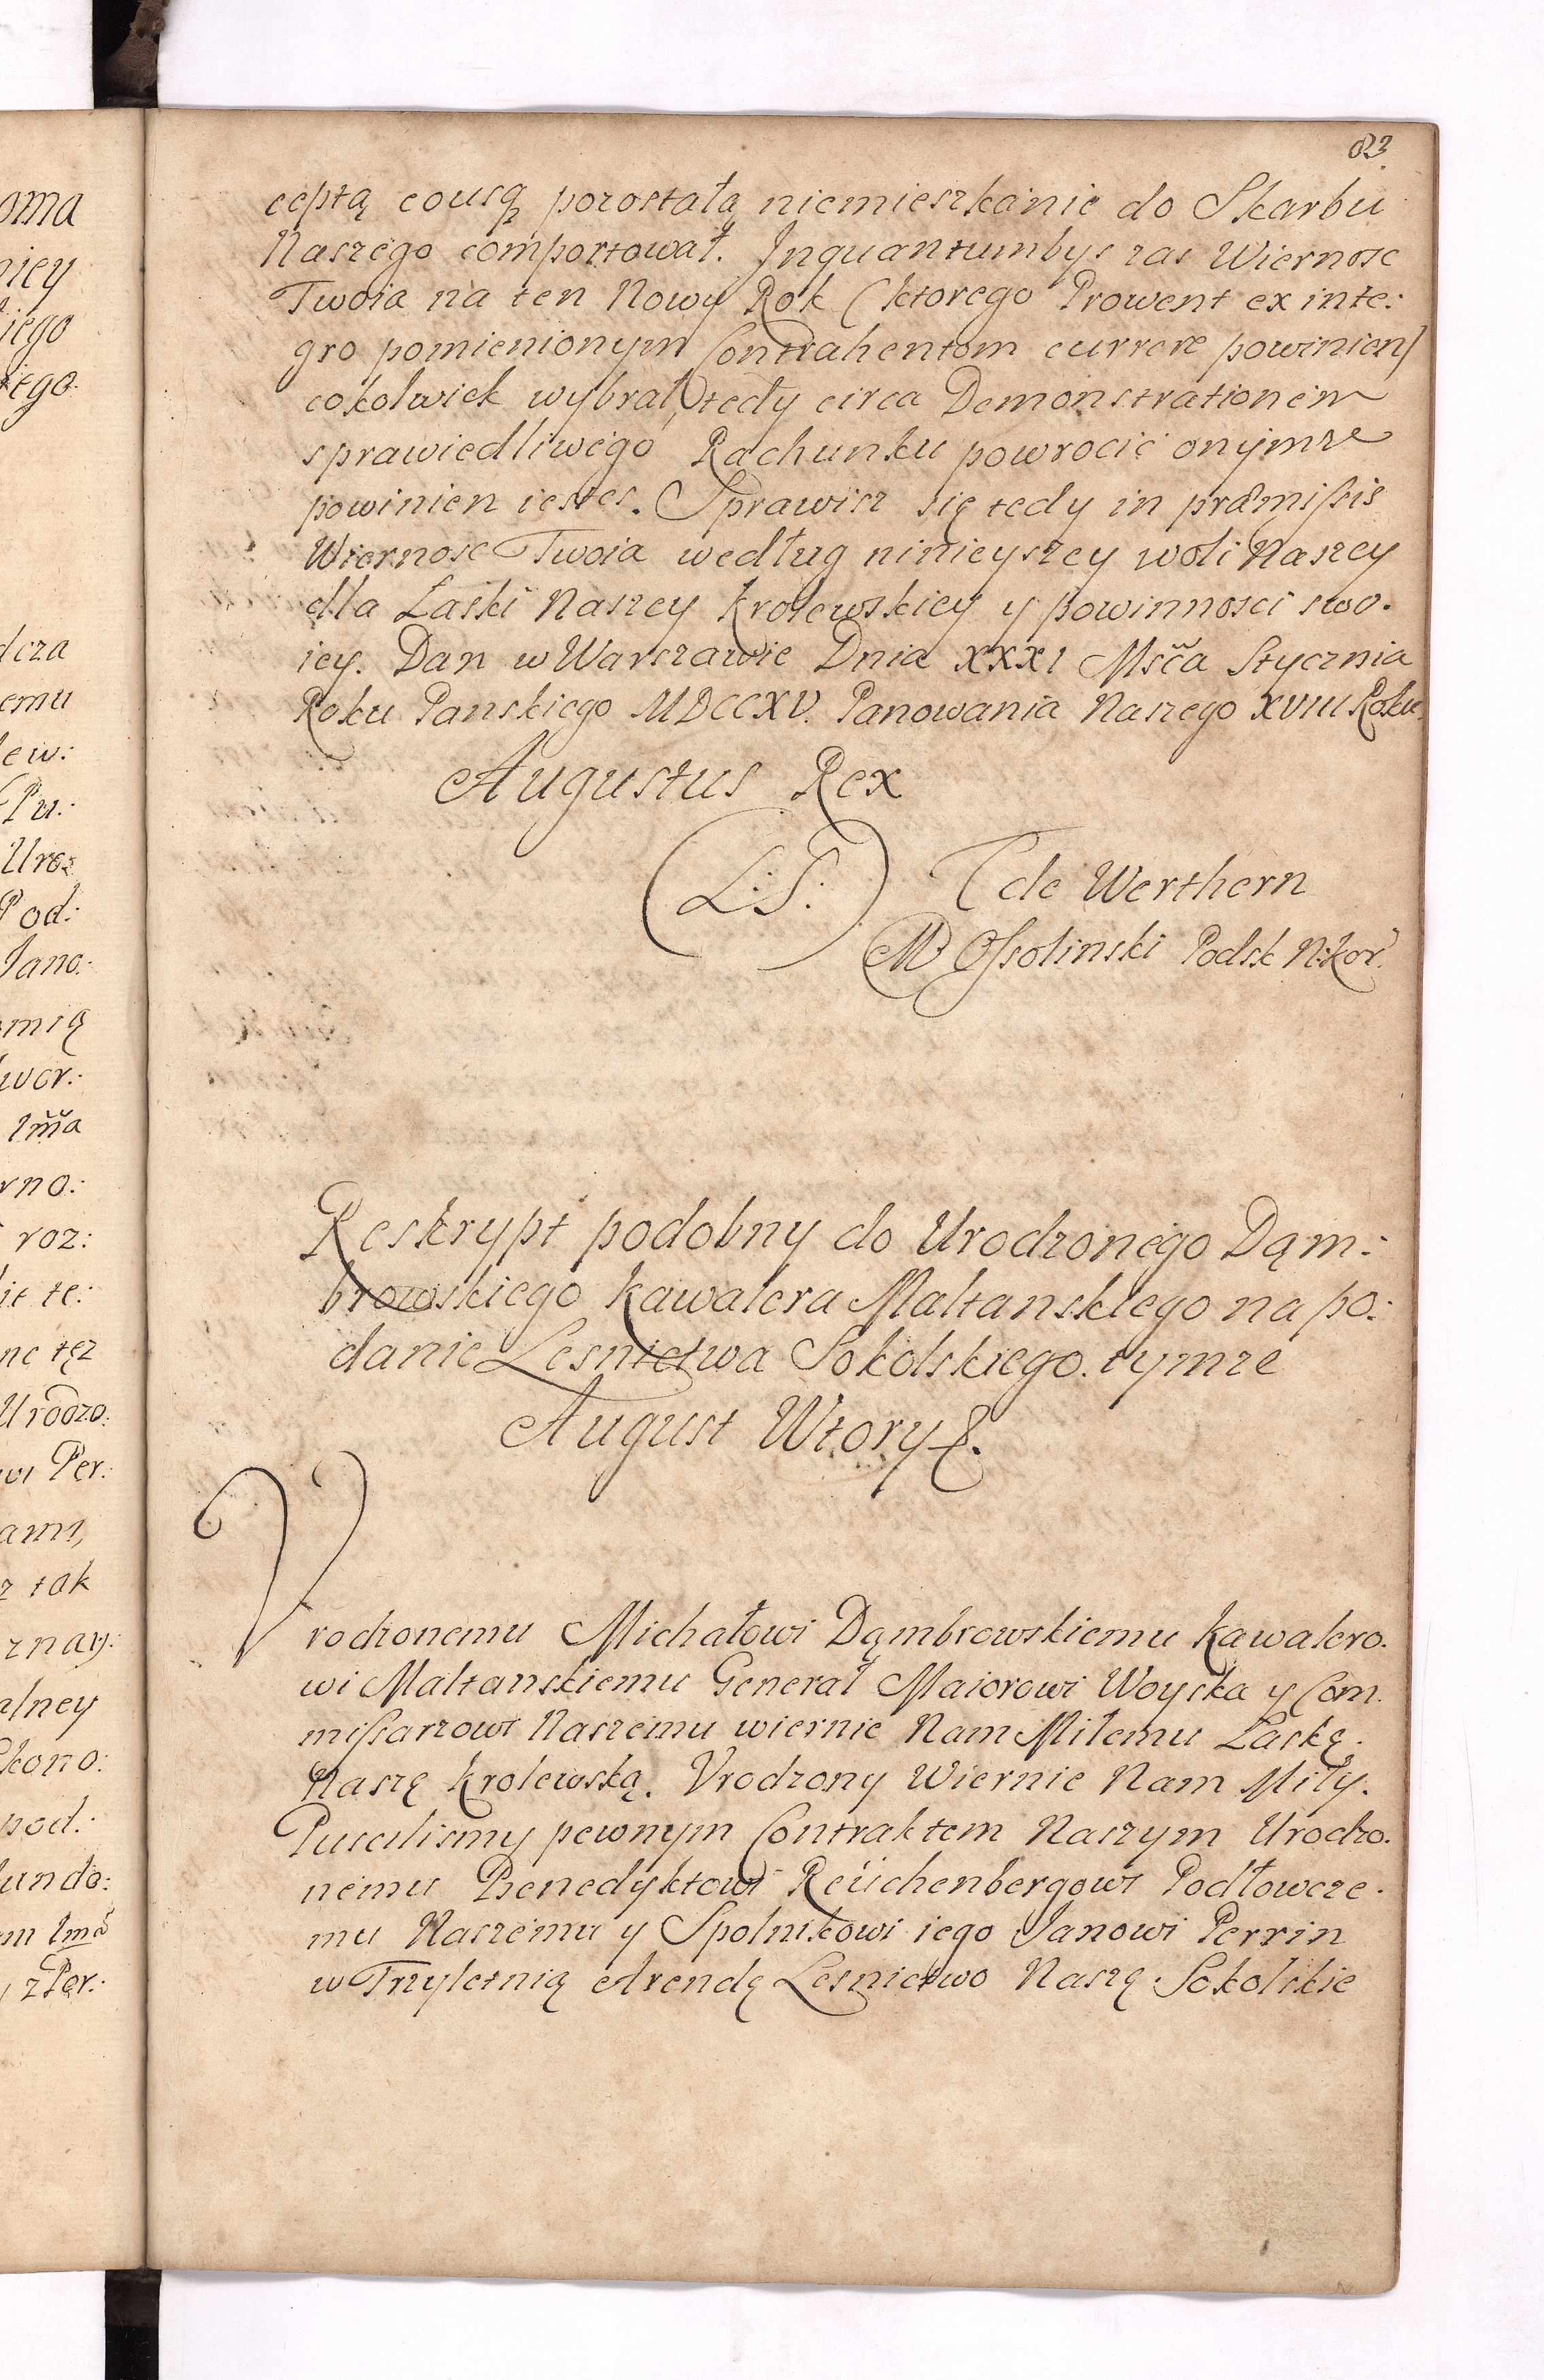 83
ceptą eousq pozostałą niemieszkanie do Skarbu
Naszego comportował. Inquantumbys zas Wiernosc
Twoia na ten Nowy Rok (ktorego Prowent ex inte:
gro pomienionym Contrahentom currere powinien)
cokolwiek wybrał, tedy circa Demonstrationem
sprawiedliwego Rachunku powrocić onymze
powinien iestes. Sprawisz się tedy in præmissis
Wiernosc Twoia według ninieyszey woli Naszey
dla Łaski Naszey krolewskiey y powinnosci swo.
iey. Dan w Warszawie Dnia XXXI Msca Stycznia
Roku Panskiego MDCCXV. Panowania Naszego XVIII Roku.
Augustus Rex
(L:S:) T de Werthern
M Ossolinski Podsk N: Kor.
Reskrypt podobny do Urodzonego Dąm:
browskiego kawalera Maltanskiego na po:
danie Lesnictwa Sokolskiego. tymze
August Wtory &.
Vrodzonemu Michałowi Dąmbrowskiemu kawalero.
wi Maltanskiemu Generał Maiorowi Woyska y Com.
missarzowi Naszemu wiernie Nam Miłemu Łaskę.
Naszę krolewską. Vrodzony Wiernie Nam Miły.
Puscilismy pewnym Contraktem Naszym Urodzo.
nemu Benedyktowi Reüchenbergowi Podłowcze.
mu Naszemu y Spolnikowi iego Janowi Perrin
w Trzyletnią Arendę Lesnictwo Naszę Sokolskie
oma
niey
iego
iego.
dcza
emu
lew:
Pu:
Uro:
Pod:
Jano:
mią
wor:
Ima
rno:
roz:
ie te:
ne też
Urodzo:
wi Per:
ami,
z tak
znay:
alney
kono:
pod:
undo:
m Ima
, z Per: